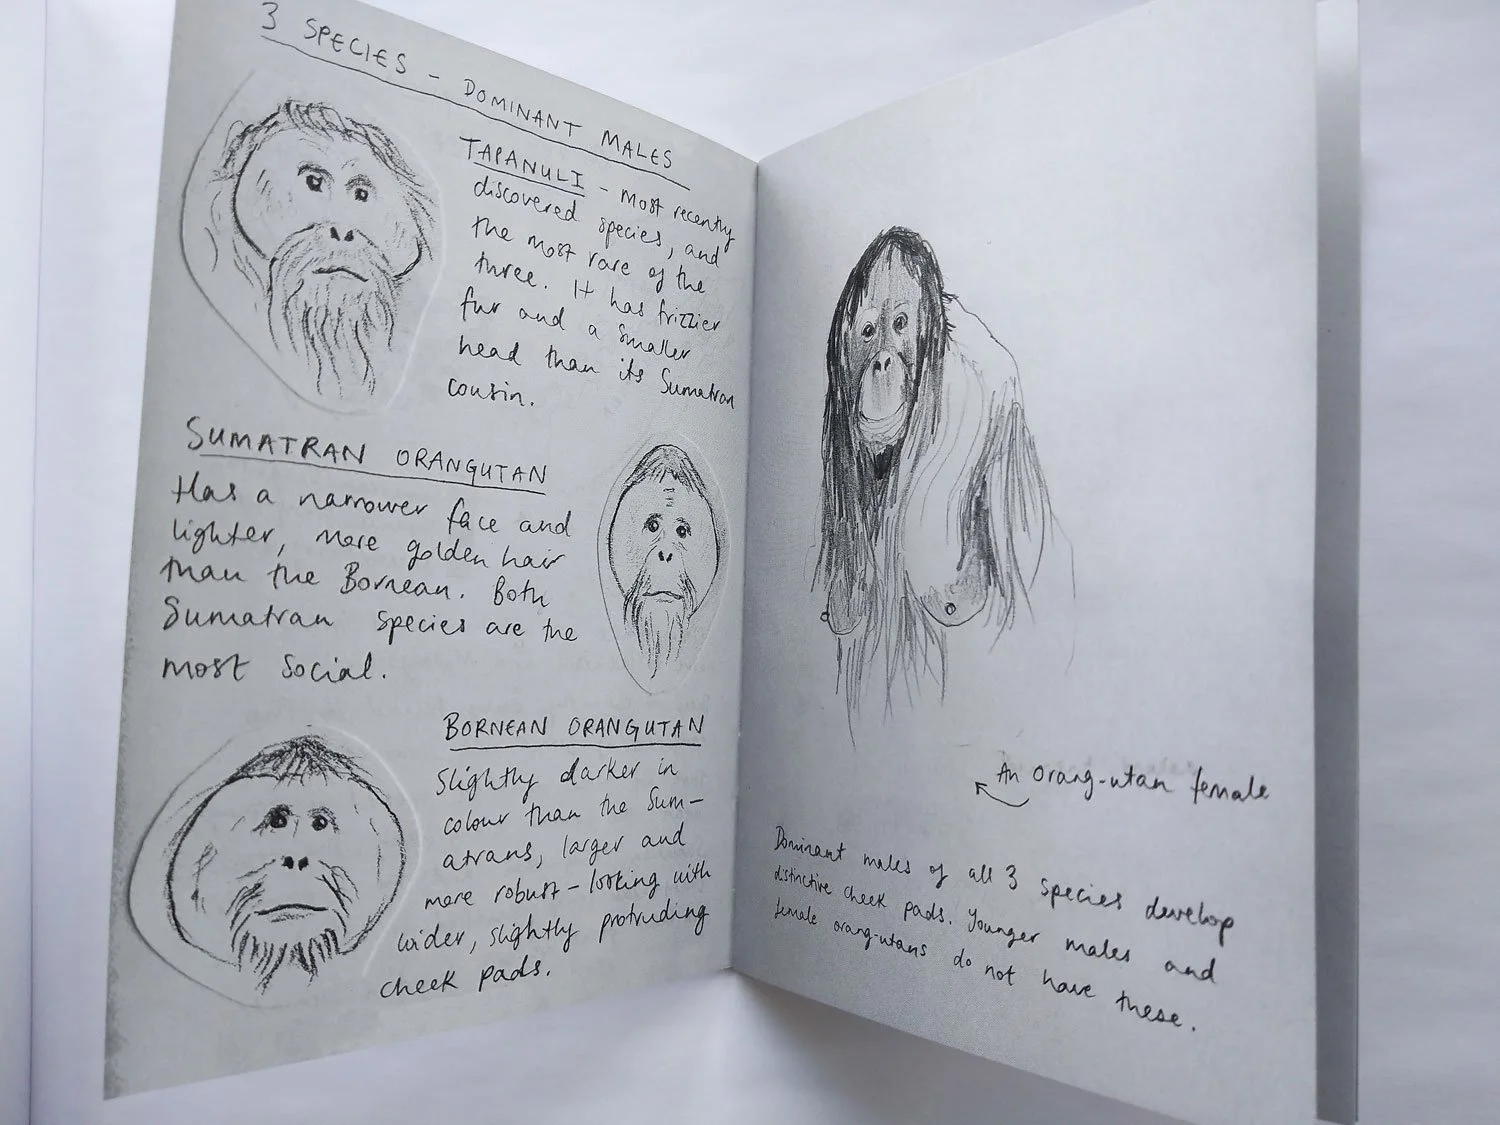 3 SPECIES - DOMINANT MALES
TAPANULI - most recently
discovered species, and
the most rare of the
three. It has frizzier
fur and a smaller
head than its Sumatran
cousin.
SUMATRAN ORANGUTAN
Has a narrower face and
lighter, more golden hair
than the Bornean. Both
Sumatran species are the
most social.
BORNEAN ORANGUTAN
Slightly darker in
colour than the Sum-
atrans, larger and
more robust - looking with
wider, slightly protruding
cheek pads.
An orang-utan female
Dominant males of all 3 species develop
distinctive cheek pads. Younger males and
female orang-utans do not have these.